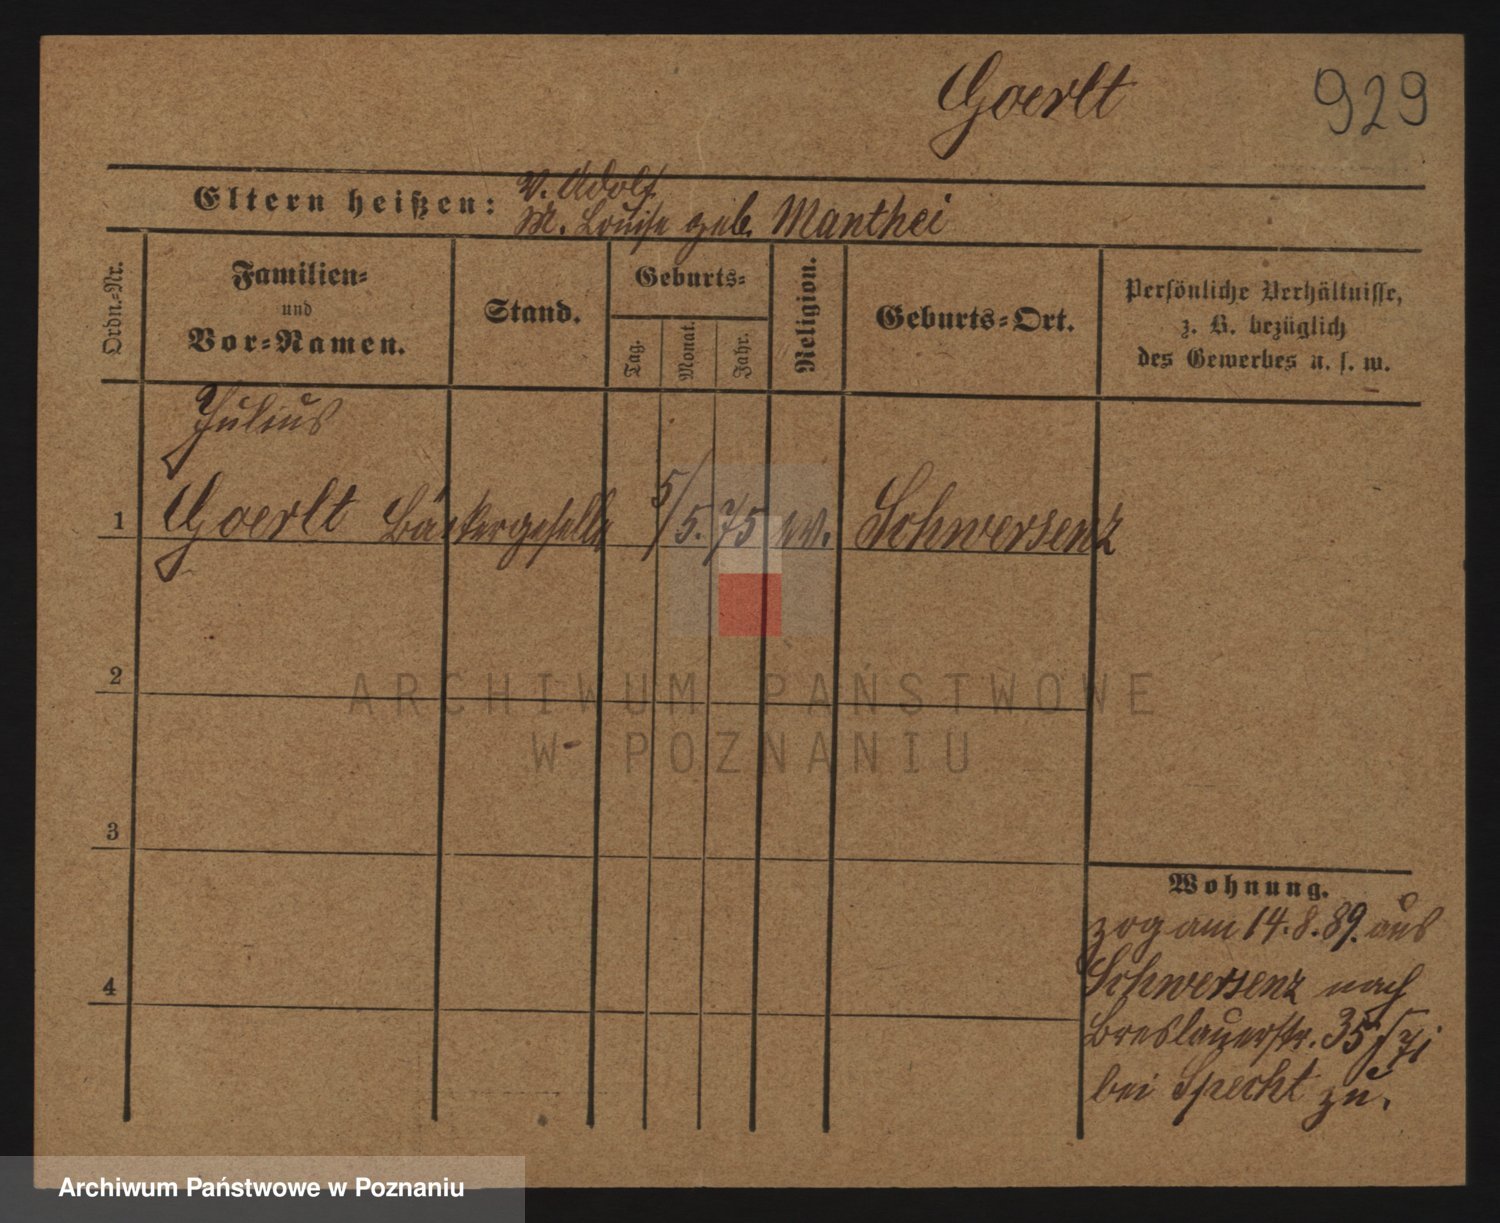 Goerlt
929
Eltern heißen: V. Adolf
M. Louise geb. Manthei
Ordn.-Nr.
Familien-
und
Vor-Namen.
Stand.
Geburts-
Tag.
Monat.
Jahr.
Religion.
Geburts-Ort.
Persönliche Verhältnisse,
z. B. bezüglich
des Gewerbes u. s. w.
Julius
1 Goerlt Bäckergeselle 5/5. 75 ev. Schwersenz
2
3
4
Wohnung.
zog am 14.8.89. aus
Schwersenz nach
Breslauerstr. 35
bei Specht zu.
ARCHIWUM PAŃSTWOWE
W POZNANIU
Archiwum Państwowe w Poznaniu